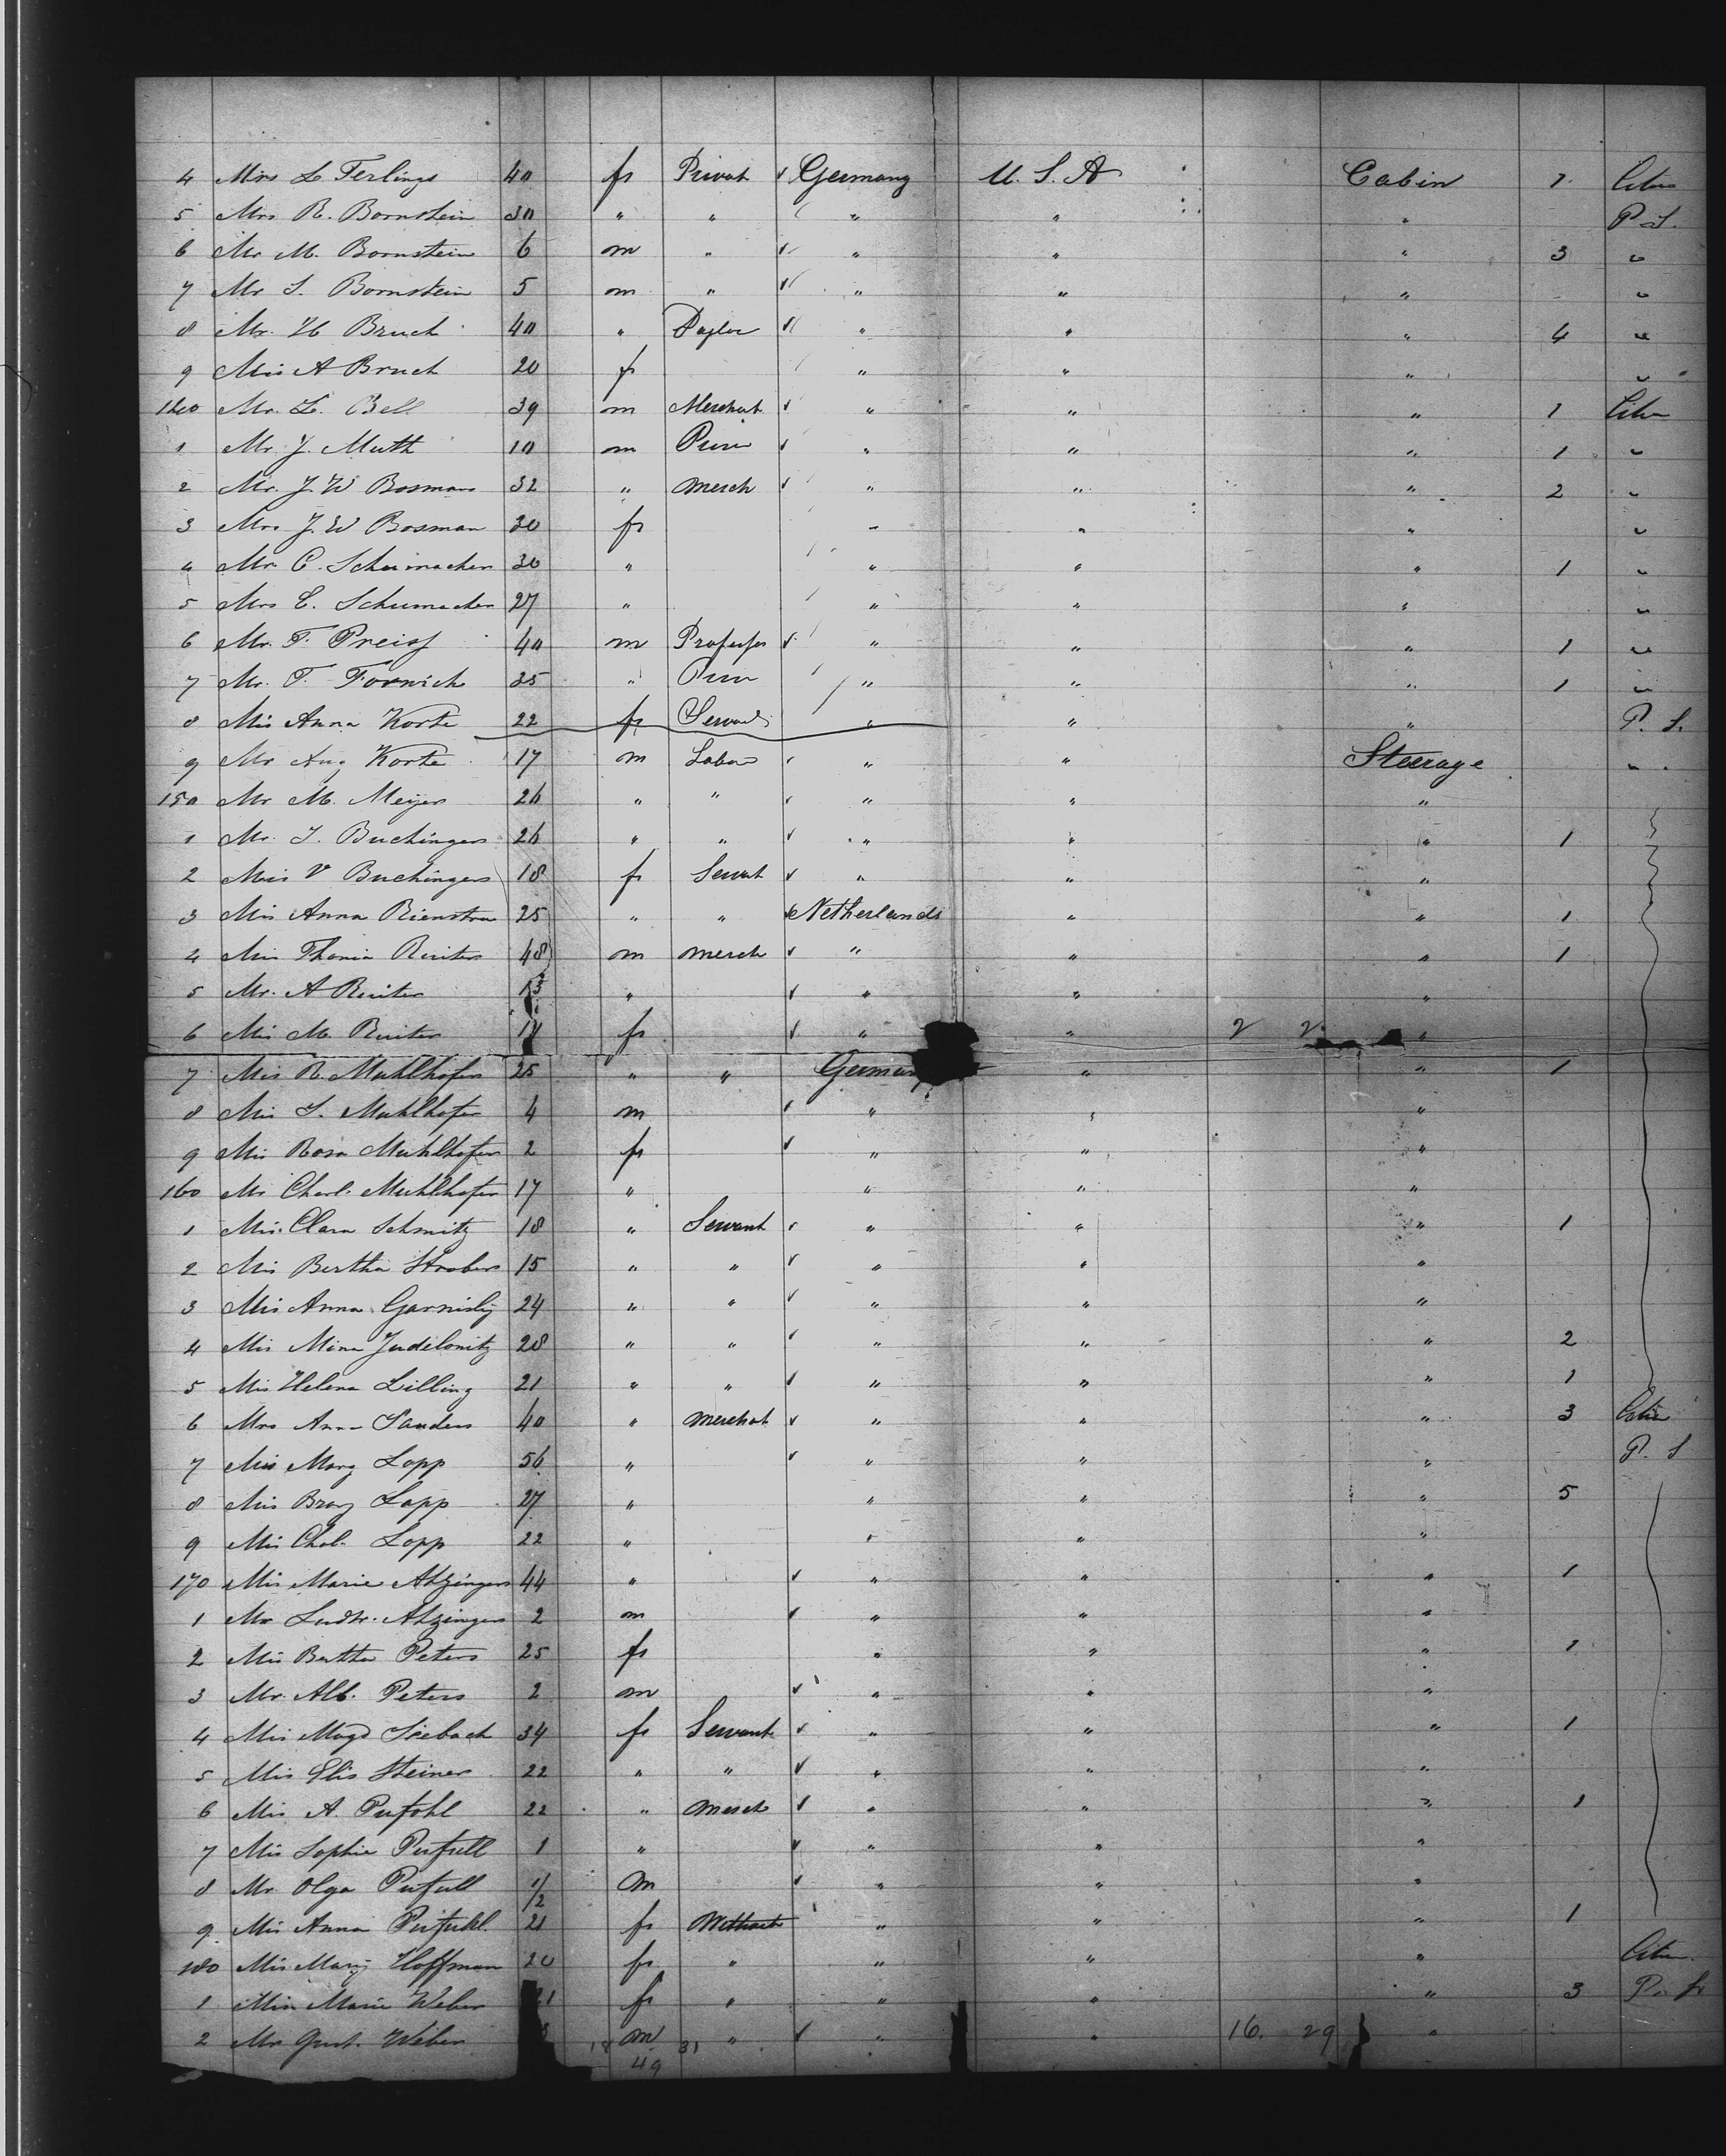 4 Mrs L Ferlings 40 f Privat Germany U. S. A Cabin 1
5 Mrs R. Bornstein 30 " " " " " P. S.
6 Mr M. Bornstein 6 m " " " " 3 "
7 Mr S. Bornstein 5 m " " " " "
8 Mr. H Bruch 40 " " " " 4 "
9 Mis A Bruch 20 f " " " "
Mr. L. Bell 39 m Merchant " " " 1
1 Mr J. Muth 10 m " " " 1 "
2 Mr. J. W Bosman 32 " Merch " " " 2 "
3 Mrs J. W Bosman 30 f " " " "
4 Mr C. Schumacher 30 " " " " 1 "
5 Mrs C. Schumacher 27 " " " " "
6 Mr. F. Preiss 40 m Professor " " " 1 "
7 Mr. F. Fornich 35 " " " " 1 "
8 Mis Anna Korte 22 f Servant " " " P. S.
9 Mr Aug Korte 17 m Labor " " Steerage "
150 Mr M. Meijer 26 " " " " "
1 Mr. J. Buchinger 26 " " " " " 1
2 Mis V Buchinger 18 f Servant " " "
3 Mis Anna Rienstra 25 " " Netherlands " " 1
4 Mis Ruiter 48 m Merch " " " 1
5 Mr. A Ruiter " " " "
6 Mis M. Ruiter f " " 2 2 "
7 Mis R. Muhlhofer 25 " " German " " 1
8 Mis S. Muhlhofer 4 m " " "
9 Mis Rosa Muhlhofer 2 f " " "
160 Mr Charl. Muhlhofer 17 " " " "
1 Mis Clara Schmitz 18 " Servant " " " 1
2 Mis Bertha Strober 15 " " " " "
3 Mis Anna 24 " " " " "
4 Mis Mina Judelowitz 28 " " " " " 2
5 Mis Helena Lilling 21 " " " " " 1
6 Mrs Anna Sanders 40 " Merchat " " " 3
7 Mis Mary Lopp 56 " " " " P. S
8 Mis Lopp 27 " " " " 5
9 Mis Lopp 22 " " " "
170 Mis Marie Atzinger 44 " " " " 1
1 Mr Ludw. Atzinger 2 m " " "
2 Mis Bertha Peters 25 f " " " 1
3 Mr. Alb. Peters 2 m " " "
4 Mis Magd Siebach 34 f Servant " " " 1
5 Mis Elis Steiner 22 " " " " "
6 Mis A. Pufohl 22 " Merch " " " 1
7 Mis Sophie Pufull 1 " " " "
8 Mr Olga Pufull 1/2 m " " "
9 Mis Anna Pufuhl 21 f " " " 1
180 Mis Mary Hoffman 20 f " " " "
1 Mis Marie Weber 21 f " " " " 3
2 Mr Gust. Weber m " " " 16. 29 "
18 49 31